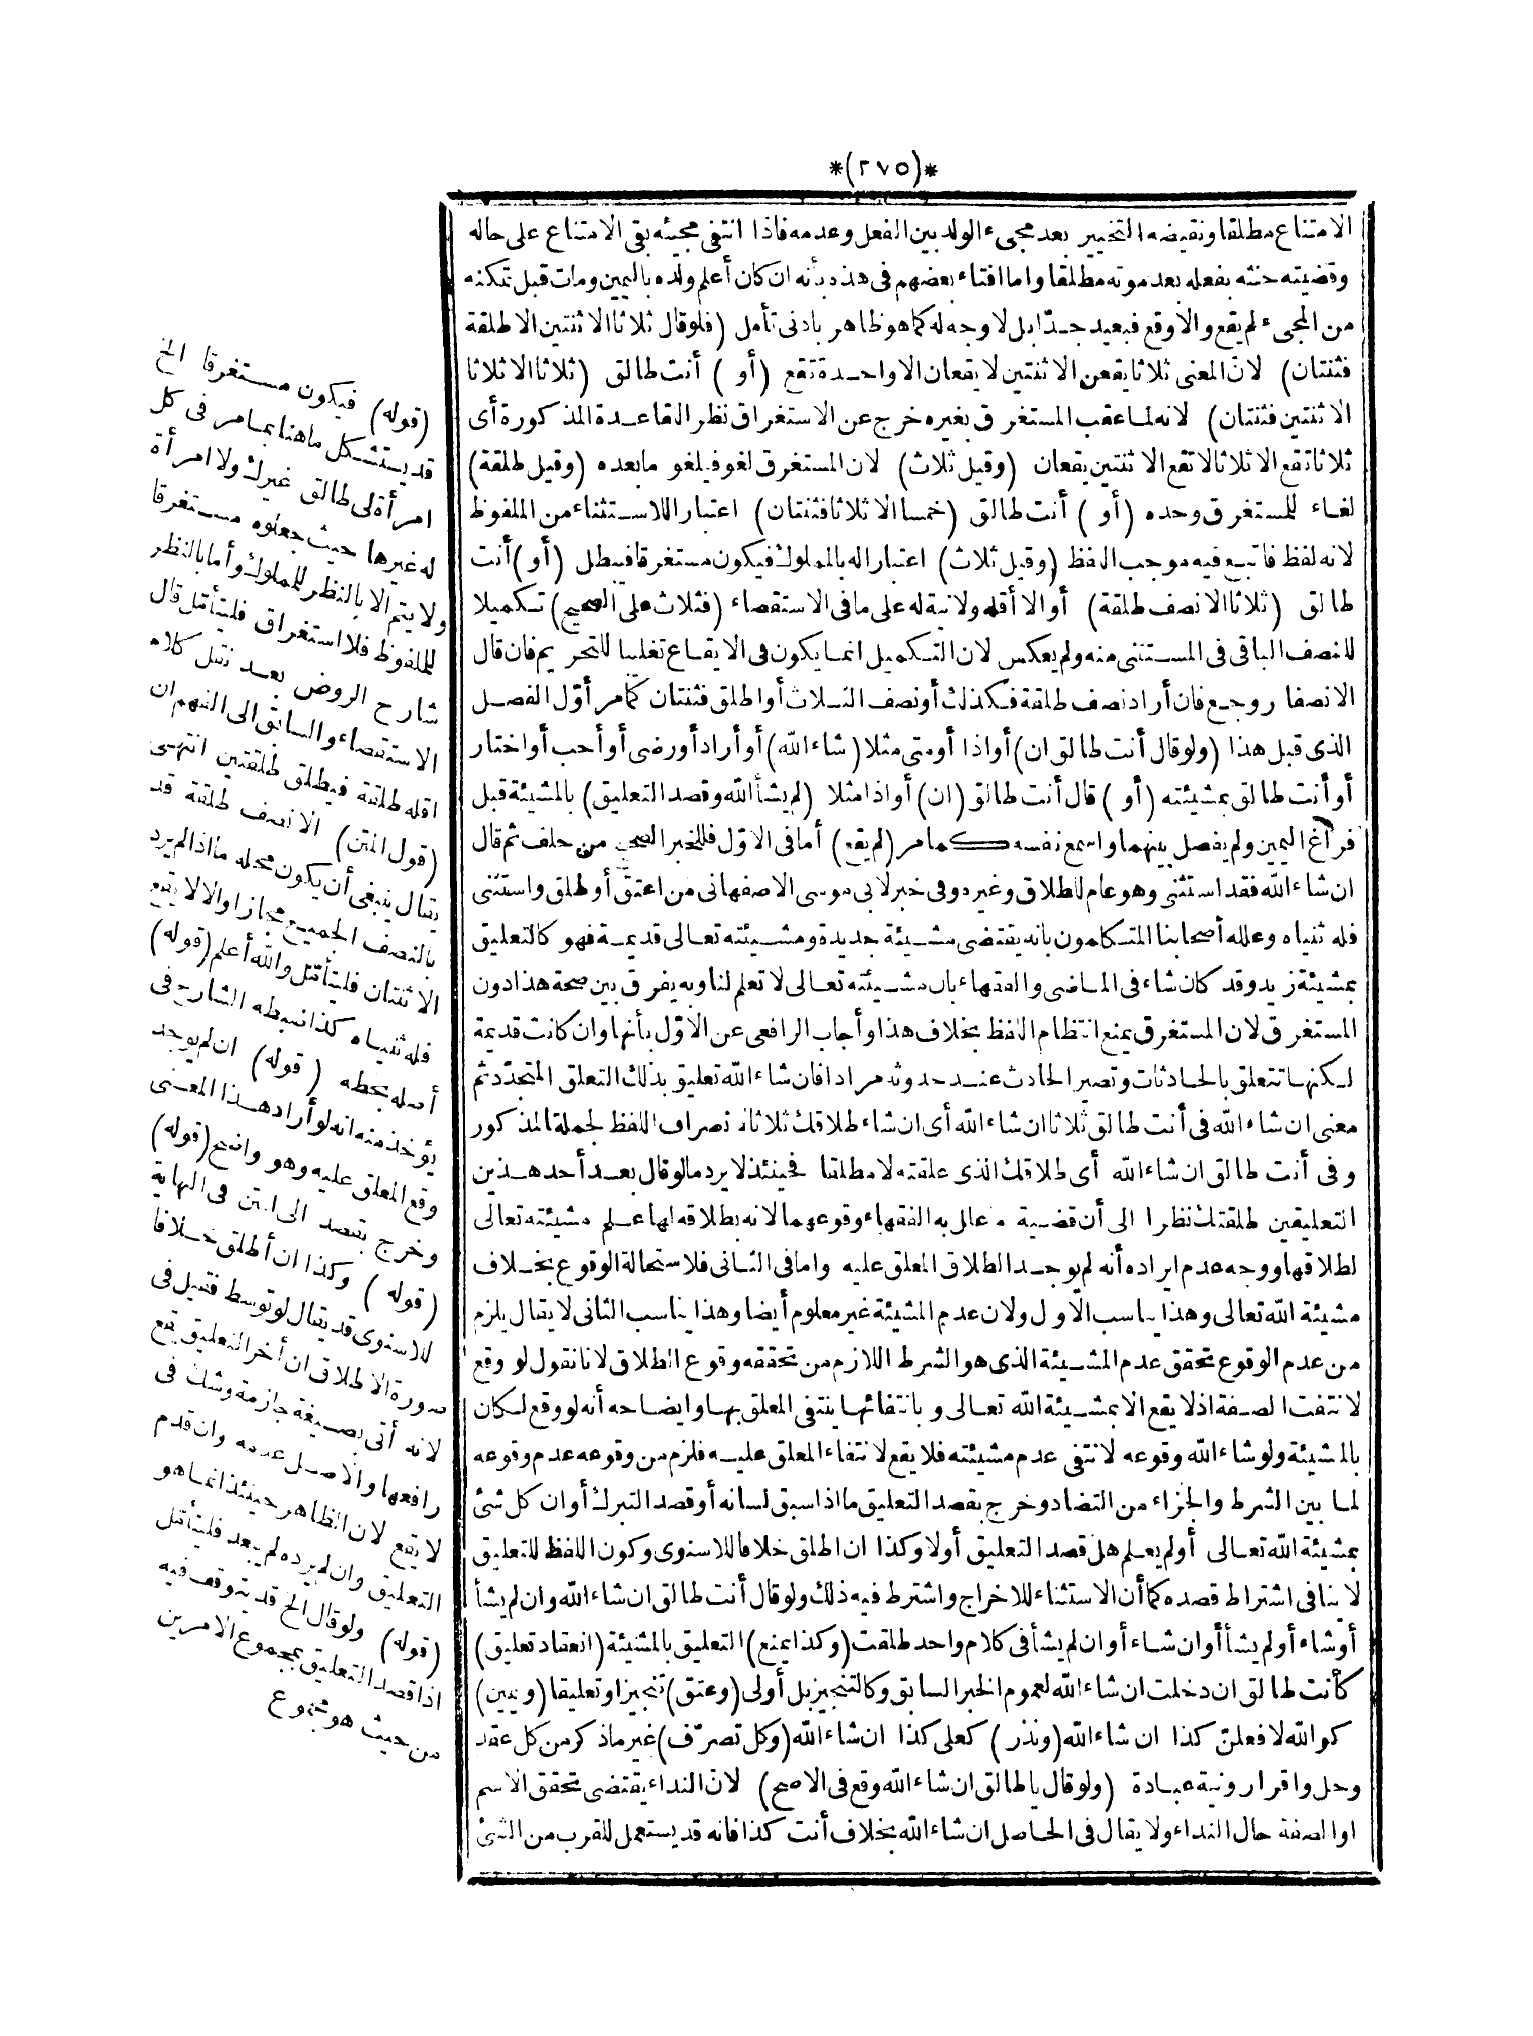 *(٢٧٥)*
الامتناع مطلقا ونقيضه التخيير بعد مجىء الولد بين الفعل وعدمه فاذا انتفى مجيئه بقى الامتناع على حاله
وقضيته حنثه بفعله بعد موته مطلقا واما افتاء بعضهم فى هذه بأنه ان كان أعلم ولده باليمين ومات قبل تمكنه
من المجىء لم يقع والا وقع فبعيد جدّا بل لا وجه له كما هو ظاهر بادنى تأمل (فلو قال ثلاثا الا ثنتين الا طلقة
فثنتان) لان المعنى ثلاثا يقعن الا ثنتين لا يقعان الا واحدة تقع (أو) أنت طالق (ثلاثا الا ثلاثا
الا ثنتين فثنتان) لانه لما عقب المستغرق بغيره خرج عن الاستغراق نظر القاعدة المذكورة أى
ثلاثا تقع الا ثلاثا لا تقع الا ثنتين يقعان (وقيل ثلاث) لان المستغرق لغو فيلغو ما بعده (وقيل طلقة)
لغاء للمستغرق وحده (أو) أنت طالق (خمسا الا ثلاثا فثنتان) اعتبارا للاستثناء من الملفوظ
لانه لفظ فاتبع فيه موجب اللفظ (وقيل ثلاث) اعتبارا له بالمملوك فيكون مستغرقا فيبطل (أو) أنت
طالق (ثلاثا الا نصف طلقة) أو الا أقله ولا نية له على ما فى الاستقصاء (فثلاث على الصحيح) تكميلا
للنصف الباقى فى المستثنى منه ولم يعكس لان التكميل انما يكون فى الايقاع تغليبا للتحريم فان قال
الا نصفا روجع فان أراد نصف طلقة فكذلك أو نصف الثلاث أو اطلق فثنتان كما مر أوّل الفصل
الذى قبل هذا (ولو قال أنت طالق ان) أو اذا أو متى مثلا (شاء الله) أو أراد أو رضى أو أحب أو اختار
أو أنت طالق بمشيئته (أو) قال أنت طالق (ان) أو اذا مثلا (لم يشأ الله وقصد التعليق) بالمشيئة قبل
فراغ اليمين ولم يفصل بينهما واسمع نفسه كما مر (لم يقع) أما فى الاوّل فللخبر الصحيح من حلف ثم قال
ان شاء الله فقد استثنى وهو عام للطلاق وغيره وفى خبر لابى موسى الاصفهانى من اعتق أو طلق واستثنى
فله ثنياه وعلله أصحابنا المتكلمون بانه يقتضى مشيئة جديدة ومشيئته تعالى قديمة فهو كالتعليق
بمشيئة زيد وقد كان شاء فى الماضى والفقهاء بان مشيئته تعالى لا تعلم لنا وبه يفرق بين صحة هذا دون
المستغرق لان المستغرق يمنع انتظام اللفظ بخلاف هذا وأجاب الرافعى عن الاوّل بأنها وان كانت قديمة
لكنها تتعلق بالحادثات وتصير الحادث عند حدوثه مرادا فان شاء الله تعليق بذلك التعلق المتجدّد ثم
معنى ان شاء الله فى أنت طالق ثلاثا ان شاء الله أى ان شاء طلاقك ثلاثا نصراف اللفظ لجملة المذكور
وفى أنت طالق ان شاء الله أى طلاقك الذى علقته لا مطلقا فحينئذ لا يرد ما لو قال بعد أحد هذين
التعليقين طلقتك نظرا الى أن قضية ما علل به الفقهاء وقوعهما لانه بطلاقه لها علم مشيئته تعالى
لطلاقها ووجه عدم ايراده أنه لم يوجد الطلاق المعلق عليه واما فى الثانى فلاستحالة الوقوع بخلاف
مشيئة الله تعالى وهذا يناسب الاول ولان عدم المشيئة غير معلوم أيضا وهذا يناسب الثانى لا يقال يلزم
من عدم الوقوع تحقق عدم المشيئة الذى هو الشرط اللازم من تحققه وقوع الطلاق لانا نقول لو وقع
لانتفت الصفة اذ لا يقع الا بمشيئة الله تعالى وبانتفائها ينتفى المعلق بها وايضاحه أنه لو وقع لكان
بالمشيئة ولو شاء الله وقوعه لانتفى عدم مشيئته فلا يقع لانتفاء المعلق عليه فلزم من وقوعه عدم وقوعه
لما بين الشرط والجزاء من التضاد وخرج بقصد التعليق ما اذا سبق لسانه أو قصد التبرك أو ان كل شئ
بمشيئة الله تعالى أو لم يعلم هل قصد التعليق أو لا وكذا ان اطلق خلافا للاسنوى وكون اللفظ للتعليق
لا ينافى اشتراط قصده كما أن الاستثناء للاخراج واشترط فيه ذلك ولو قال أنت طالق ان شاء الله وان لم يشأ
أو شاء أو لم يشأ أو ان شاء أو ان لم يشأ فى كلام واحد طلقت (وكذا يمنع) التعليق بالمشيئة (انعقاد تعليق)
كأنت طالق ان دخلت ان شاء الله لعموم الخبر السابق وكالتنجيز بل أولى (وعتق) تنجيزا وتعليقا (ويمين)
كو الله لافعلنّ كذا ان شاء الله (ونذر) كعلى كذا ان شاء الله (وكل تصرّف) غير ما ذكر من كل عقد
وحل واقرار ونية عبادة (ولو قال يا طالق ان شاء الله وقع فى الاصح) لان النداء يقتضى تحقق الاسم
او الصفة حال النداء ولا يقال فى الحاصل ان شاء الله بخلاف أنت كذا فانه قد يستعمل للقرب من الشئ
(قوله) فيكون مستغرقا الخ
قد يستشكل ما هنا بما مر فى كل
امرأة لى طالق غيرك ولا امرأة
له غيرها حيث جعلوه مستغرقا
ولا يتم الا بالنظر للمملوك وأما بالنظر
للملفوظ فلا استغراق فليتأمّل قال
شارح الروض بعد نقل كلام
الاستقصاء والسابق الى الفهم ان
اقله طلقة فيطلق طلقتين انتهى
(قول المتن) الا نصف طلقة قد
يقال ينبغى أن يكون محله ما اذا لم يرد
بالنصف الجميع مجازا والا لا يقع
الا ثنتان فليتأمّل والله أعلم (قوله)
فله ثنياه كذا ضبطه الشارح فى
أصله بخطه (قوله) ان لم يوجد
يؤخذ منه انه لو أراد هذا المعنى
وقع المعلق عليه وهو واضح (قوله)
وخرج بقصد الى المتن فى النهاية
(قوله) وكذا ان أطلق خلافا
للاسنوى قد يقال لو توسط فقيل فى
صورة الاطلاق ان أخر التعليق يقع
لانه أتى بصيغة جازمة وشك فى
رافعها والاصل عدمه وان قدم
لا يقع لان الظاهر حينئذ انما هو
التعليق وان لم يرده لم يبعد فليتأمّل
(قوله) ولو قال الخ قد يتوقف فيه
اذا قصد التعليق بمجموع الامرين
من حيث هو مجموع